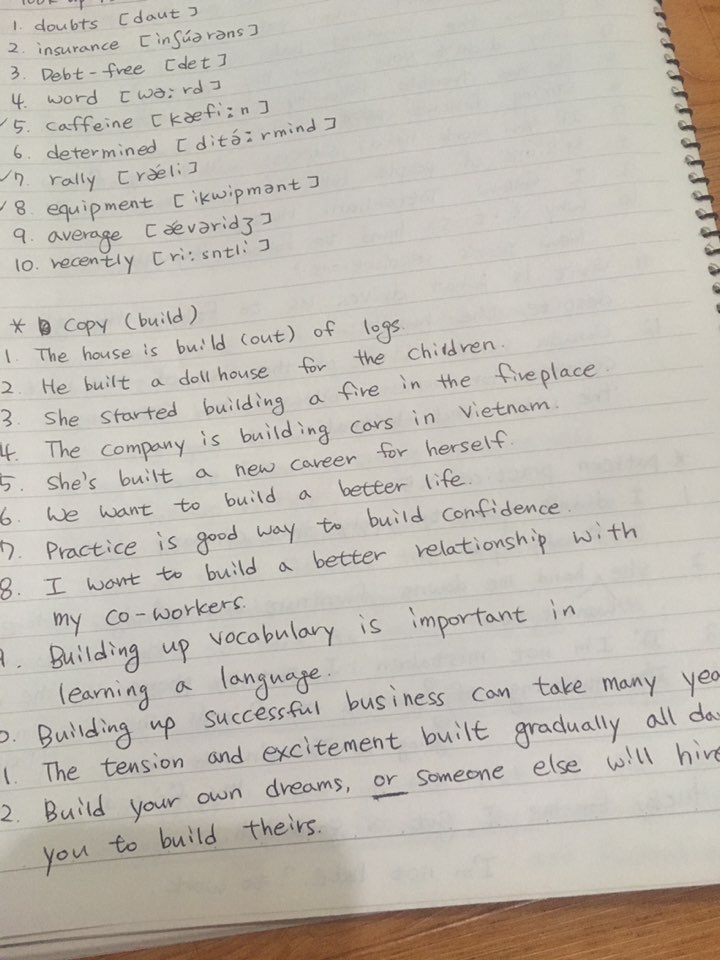 look up
1. doubts [daut]
2. insurance [inʃúərəns]
3. Debt-free [det]
4. word [wəːrd]
✓5. caffeine [kæfiːn]
6. determined [ditə́ːrmind]
✓7. rally [rǽli]
✓8. equipment [ikwipmənt]
9. average [ǽvəridʒ]
10. recently [riːsntli]
* Copy (build)
1. The house is build (out) of logs.
2. He built a doll house for the children.
3. She started building a fire in the fireplace.
4. The company is building cars in Vietnam.
5. She's built a new career for herself.
6. We want to build a better life.
7. Practice is good way to build confidence.
8. I want to build a better relationship with
my co-workers.
9. Building up vocabulary is important in
learning a language.
0. Building up successful business can take many yea
1. The tension and excitement built gradually all da
2. Build your own dreams, or someone else will hire
you to build theirs.